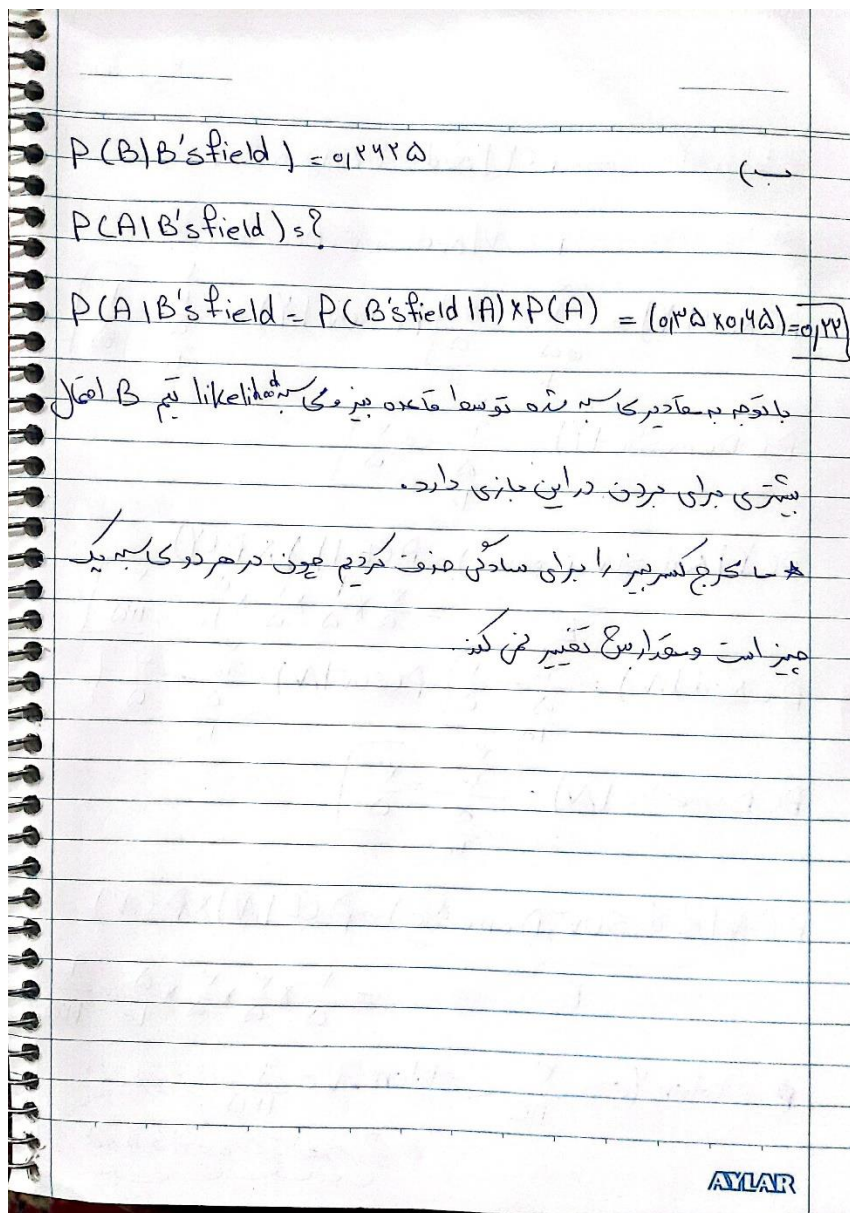 ب)
P(B|B's field) = ۰,۲۶۲۵
P(A|B's field) = ?
P(A|B's field = P(B's field|A) × P(A) = (۰,۳۵ × ۰,۶۵) = ۰,۲۲
با توجه به مقادیر محاسبه شده توسط قاعده بیز و محاسبه likelihood تیم B احتمال
بیشتری برای بردن در این بازی دارد.
* ما مخرج کسر بیز را برای سادگی حذف کردیم چون در هر دو محاسبه یک
چیز است و مقدارش تغییر نمی کند.
AYLAR